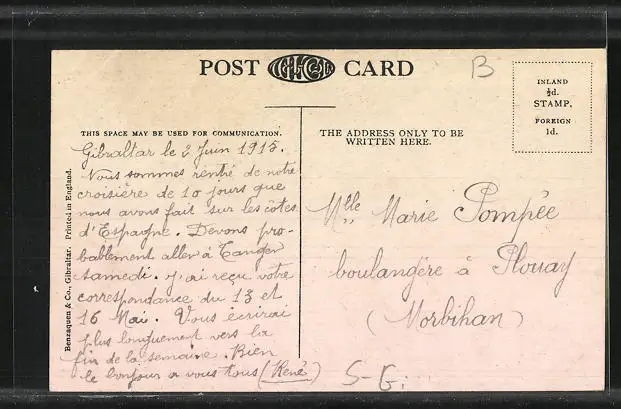 POST CARD
B
INLAND
½d.
STAMP.
FOREIGN
1d.
THIS SPACE MAY BE USED FOR COMMUNICATION.
THE ADDRESS ONLY TO BE
WRITTEN HERE.
Benzaquen & Co., Gibraltar. Printed in England.
Gibraltar le 2 Juin 1915.
Nous sommes rentré de notre
croisière de 10 jours que
nous avons fait sur les côtes
d'Espagne. Devons pro-
bablement aller à Tanger
samedi. J'ai reçu votre
correspondance du 13 et
16 Mai. Vous écrirai
plus longuement vers la
fin de la semaine. Bien
le bonjour a vous tous (René)
Mlle Marie Pompée
boulangère à Plouay
(Morbihan)
S-G.